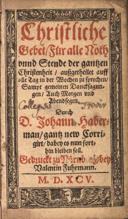 Christliche
Gebet / Für alle Noth
vnnd Stende der gantzen
Christenheit / außgetheilet auff
alle Tag in der Wochen zu sprechen /
Sampt gemeinen Dancksagun-
gen / Auch Morgen vnd
Abendsegen.
Durch
D. Johann. Haber-
man / gantz new Corri-
girt / dabey es nun fort-
hin bleiben soll.
Gedruckt zu Nürnb. bey
Valentin Fuhrmann.
M. D. XCV.